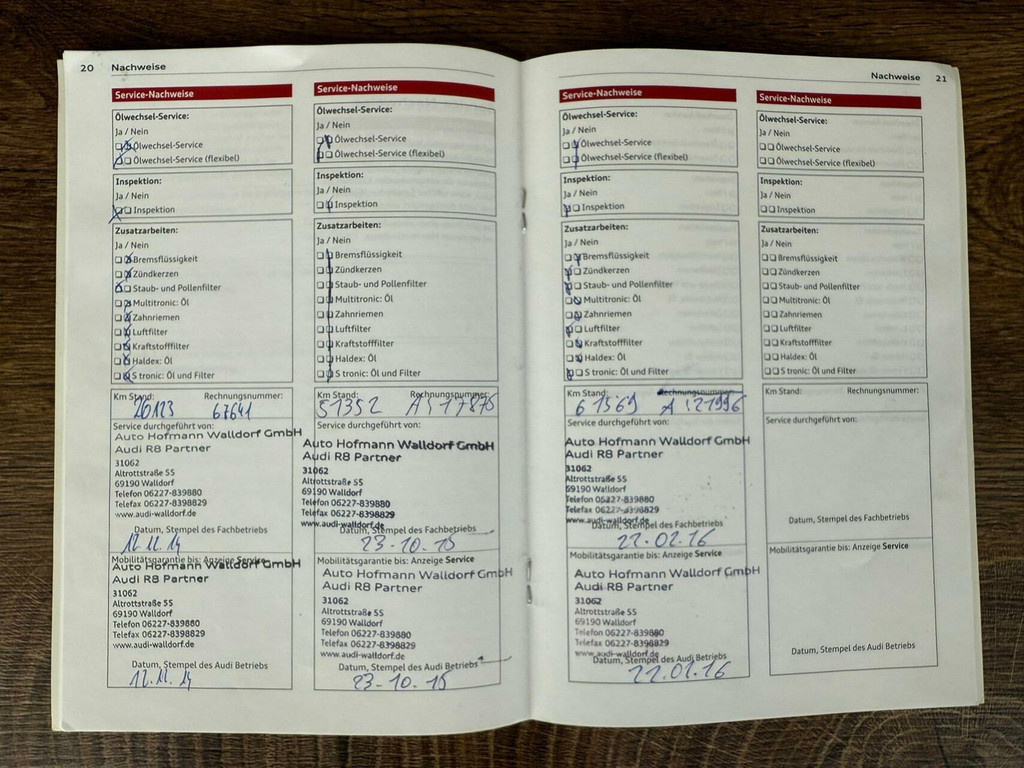 20 Nachweise
Service-Nachweise
Ölwechsel-Service:
Ja / Nein
Ölwechsel-Service
Ölwechsel-Service (flexibel)
Inspektion:
Ja / Nein
Inspektion
Zusatzarbeiten:
Ja / Nein
Bremsflüssigkeit
Zündkerzen
Staub- und Pollenfilter
Multitronic: Öl
Zahnriemen
Luftfilter
Kraftstofffilter
Haldex: Öl
S tronic: Öl und Filter
Km Stand: Rechnungsnummer:
67641
Service durchgeführt von:
Auto Hofmann Walldorf GmbH
Audi R8 Partner
31062
Altrottstraße 55
69190 Walldorf
Telefon 06227-839880
Telefax 06227-8398829
www.audi-walldorf.de
Datum, Stempel des Fachbetriebs
12.11.14
Mobilitätsgarantie bis: Anzeige Service
Auto Hofmann Walldorf GmbH
Audi R8 Partner
31062
Altrottstraße 55
69190 Walldorf
Telefon 06227-839880
Telefax 06227-8398829
www.audi-walldorf.de
Datum, Stempel des Audi Betriebs
12.11.14
Service-Nachweise
Ölwechsel-Service:
Ja / Nein
Ölwechsel-Service
Ölwechsel-Service (flexibel)
Inspektion:
Ja / Nein
Inspektion
Zusatzarbeiten:
Ja / Nein
Bremsflüssigkeit
Zündkerzen
Staub- und Pollenfilter
Multitronic: Öl
Zahnriemen
Luftfilter
Kraftstofffilter
Haldex: Öl
S tronic: Öl und Filter
Km Stand: Rechnungsnummer:
51352
Service durchgeführt von:
Auto Hofmann Walldorf GmbH
Audi R8 Partner
31062
Altrottstraße 55
69190 Walldorf
Telefon 06227-839880
Telefax 06227-8398829
www.audi-walldorf.de
Datum, Stempel des Fachbetriebs
23-10-15
Mobilitätsgarantie bis: Anzeige Service
Auto Hofmann Walldorf GmbH
Audi R8 Partner
31062
Altrottstraße 55
69190 Walldorf
Telefon 06227-839880
Telefax 06227-8398829
www.audi-walldorf.de
Datum, Stempel des Audi Betriebs
23-10-15
Nachweise 21
Service-Nachweise
Ölwechsel-Service:
Ja / Nein
Ölwechsel-Service
Ölwechsel-Service (flexibel)
Inspektion:
Ja / Nein
Inspektion
Zusatzarbeiten:
Ja / Nein
Bremsflüssigkeit
Zündkerzen
Staub- und Pollenfilter
Multitronic: Öl
Zahnriemen
Luftfilter
Kraftstofffilter
Haldex: Öl
S tronic: Öl und Filter
Km Stand: Rechnungsnummer:
61569 A121996
Service durchgeführt von:
Auto Hofmann Walldorf GmbH
Audi R8 Partner
31062
Altrottstraße 55
69190 Walldorf
Telefon 06227-839880
Telefax 06227-8398829
www.audi-walldorf.de
Datum, Stempel des Fachbetriebs
Mobilitätsgarantie bis: Anzeige Service
Auto Hofmann Walldorf GmbH
Audi R8 Partner
31062
Altrottstraße 55
69190 Walldorf
Telefon 06227-839880
Telefax 06227-8398829
www.audi-walldorf.de
Datum, Stempel des Audi Betriebs
Service-Nachweise
Ölwechsel-Service:
Ja / Nein
Ölwechsel-Service
Ölwechsel-Service (flexibel)
Inspektion:
Ja / Nein
Inspektion
Zusatzarbeiten:
Ja / Nein
Bremsflüssigkeit
Zündkerzen
Staub- und Pollenfilter
Multitronic: Öl
Zahnriemen
Luftfilter
Kraftstofffilter
Haldex: Öl
S tronic: Öl und Filter
Km Stand: Rechnungsnummer:
Service durchgeführt von:
Datum, Stempel des Fachbetriebs
Mobilitätsgarantie bis: Anzeige Service
Datum, Stempel des Audi Betriebs